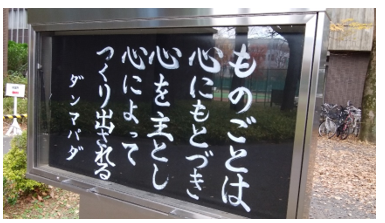 ものごとは
心にもとづき
心を主とし
心によって
つくり出される
ダンマパダ